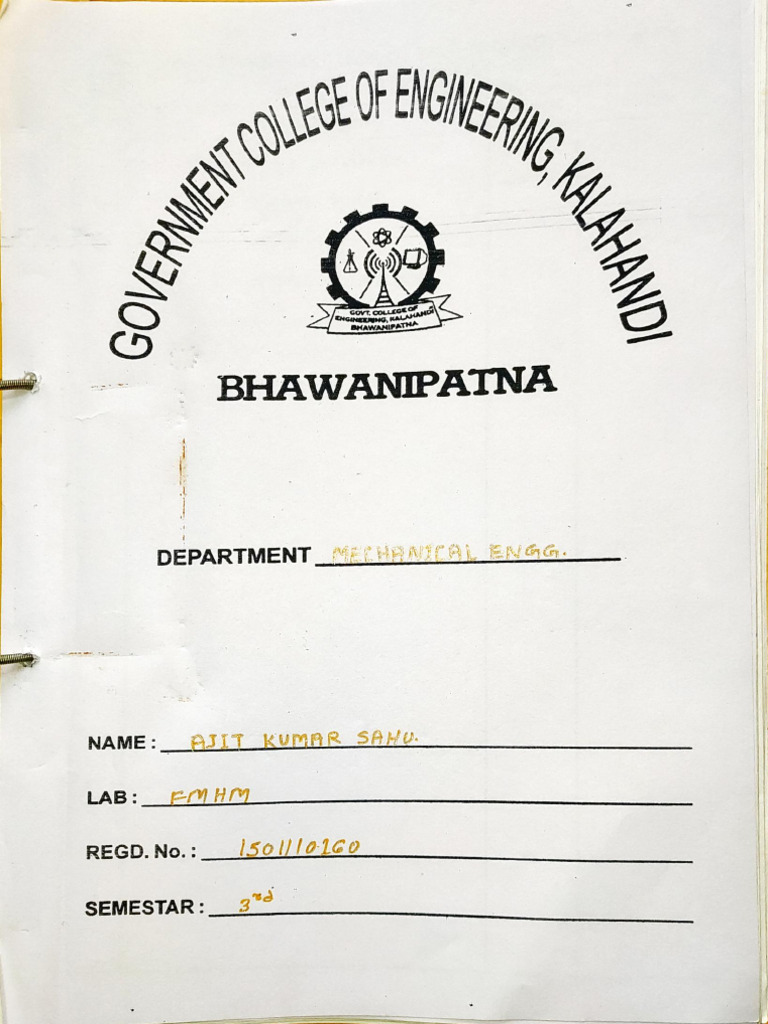 GOVERNMENT COLLEGE OF ENGINEERING, KALAHANDI
GOVT. COLLEGE OF
ENGINEERING, KALAHANDI
BHAWANIPATNA
BHAWANIPATNA
DEPARTMENT MECHANICAL ENGG.
NAME : AJIT KUMAR SAHU.
LAB : FMHM
REGD. No. : 1501110260
SEMESTAR : 3rd